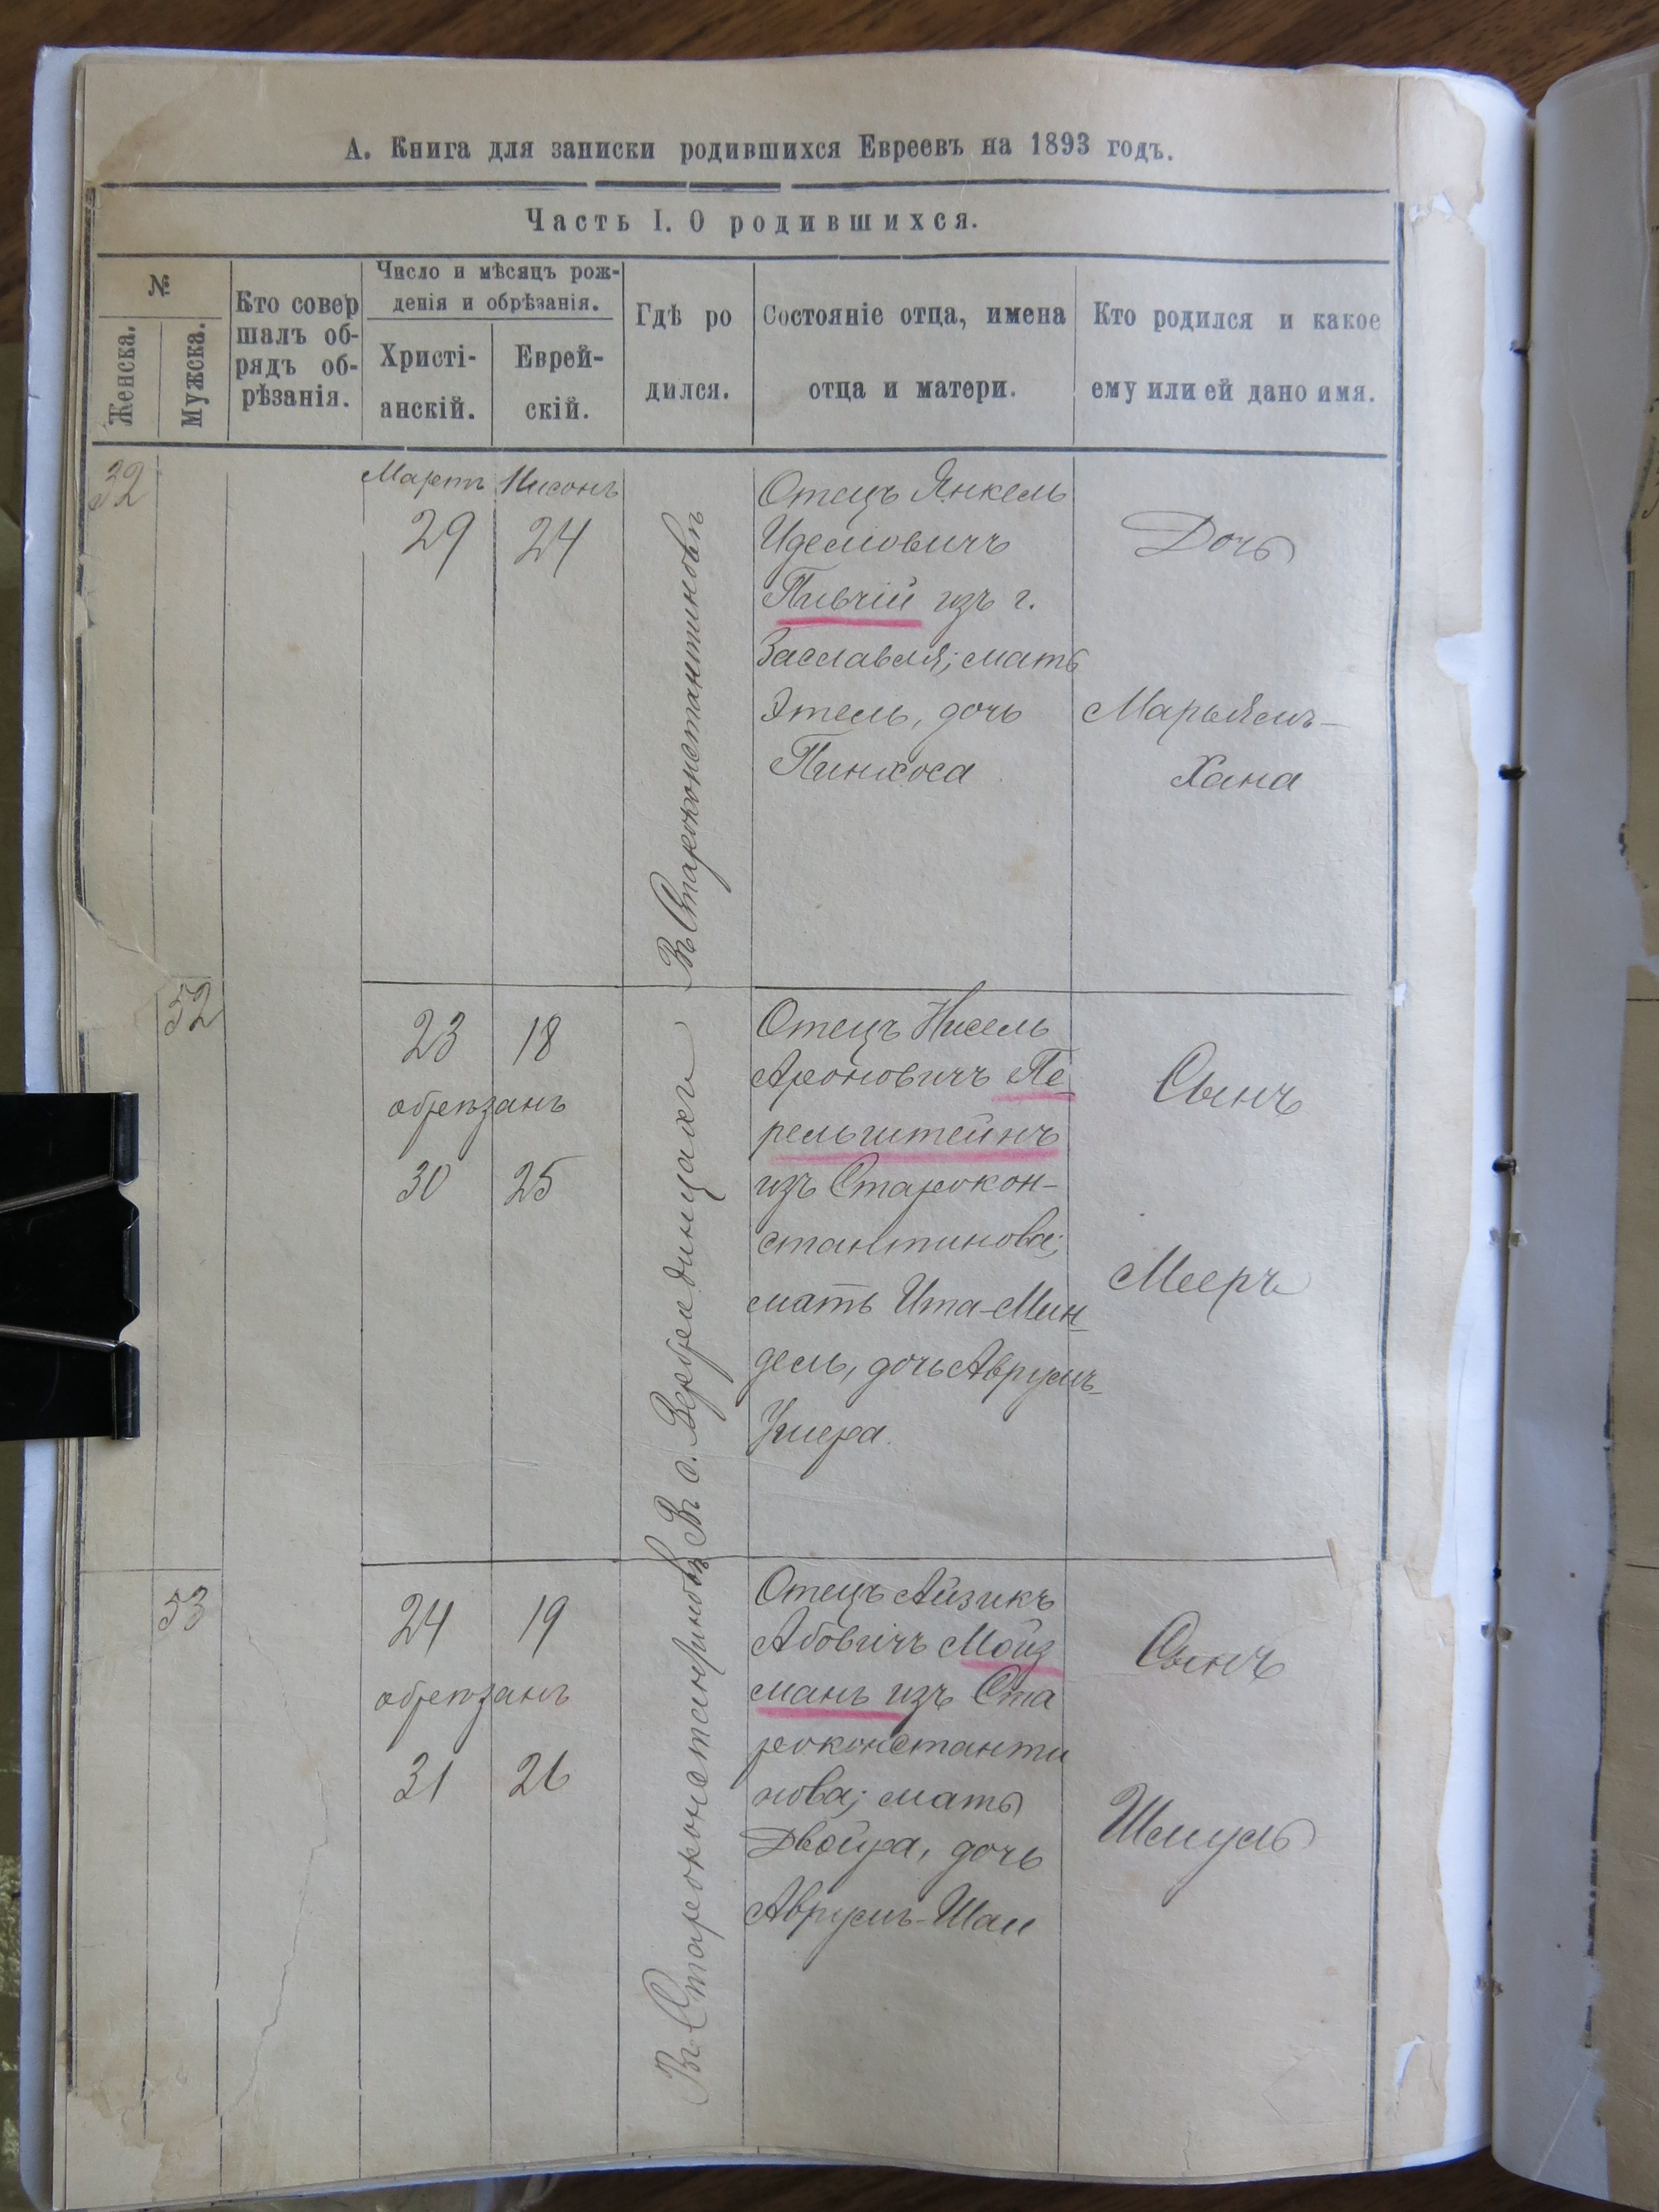 А. Книга для записки родившихся Евреевъ на 1893 годъ.
Часть I. О родившихся.
№
Женска.
Мужска.
Кто совер
шалъ об-
рядъ об-
рѣзанія.
Число и мѣсяцъ рож-
денія и обрѣзанія.
Христі-
анскій.
Еврей-
скій.
Гдѣ ро
дился.
Состояніе отца, имена
отца и матери.
Кто родился и какое
ему или ей дано имя.
32
Мартъ Нисонъ
29 24
Въ Староконстантиновѣ
Отецъ Янкель
Иделиовичъ
из г.
Заславля; мать
Этель, дочь
Пинхоса
Дочь
Марьямъ-
Хана
52
23 18
обрѣзанъ
30 25
Въ с. Вербородинцахъ
Отецъ Нисель
Ароновичъ Пе
рельштейнъ
изъ Старокон-
стантинова;
мать Ита-Мин-
дель, дочь Аврумъ-
Ушера
Сынъ
Мееръ
53
24 19
обрѣзанъ
31 26
Въ Староконстантиновѣ
Отецъ Айзикъ
Абовичъ Мойз
манъ изъ Ста
роконстанти
нова; мать
Двойра, дочь
Аврумъ-Шаи
Сынъ
Шмуль